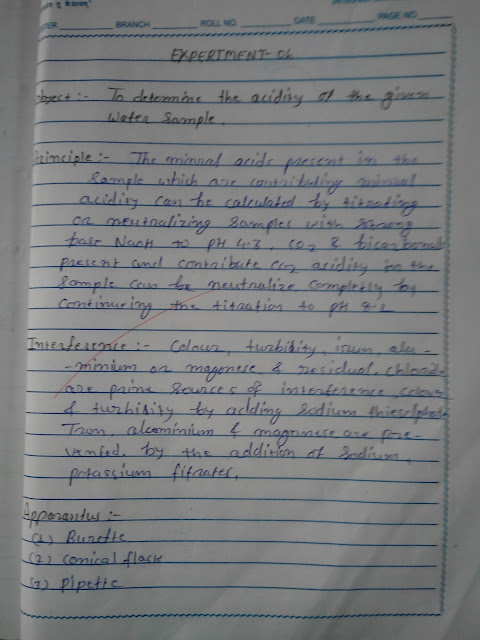 BRANCH ROLL NO. DATE PAGE NO.
EXPERIMENT-06
Object :- To determine the acidity of the given
Water Sample.
Principle :- The minral acids present in the
Sample which are contributing minral
acidity can be calculated by titrating
or neutralizing Samples with strong
base NaOH to PH 4.3, CO2 & bicarbonate
present and contribute CO2 acidity in the
Sample can be neutralize completly by
continuering the titration to pH 8.2
Interference :- Colour, turbidity, iron, alu-
-minium or magonese & residual, chloride
are prime sources of interference, colour
& turbisity by adding Sodium
Iron, aleominium & magannese are pre-
-vented. by the addition of Sodium,
potassium fitrates.
Apparantus :-
(1) Burette
(2) conical flask
(3) pipette